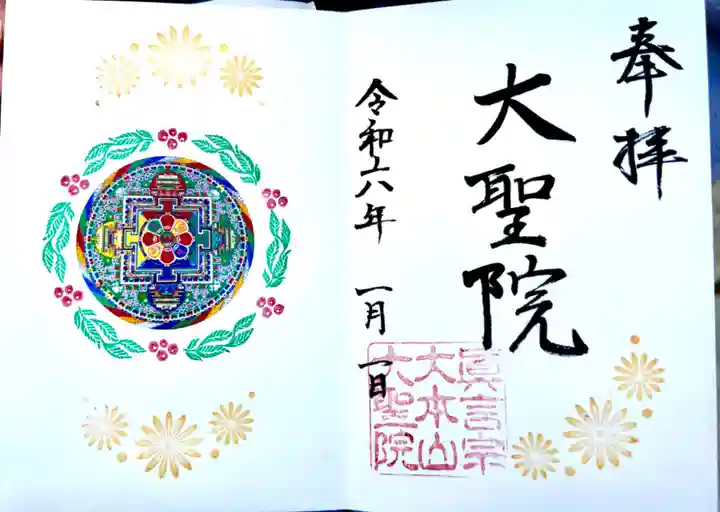 奉拝
大聖院
令和六年 一月 一日
眞言宗
大本山
大聖院